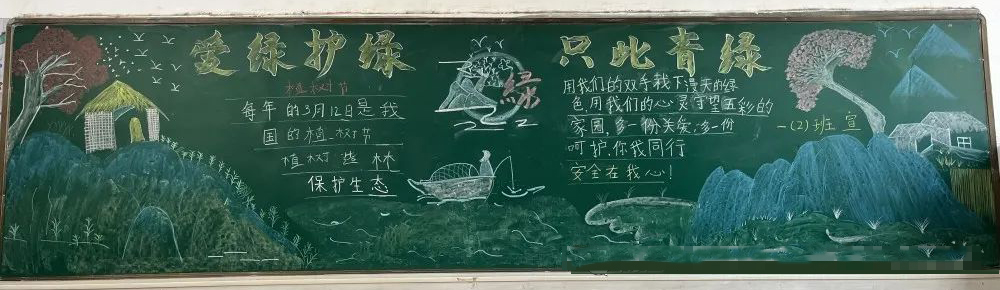 爱绿护绿
植树节
每年的3月12日是我
国的植树节
植树造林
保护生态
绿
只此青绿
用我们的双手栽下漫天的绿
色,用我们的心灵守望五彩的
家园,多一份关爱,多一份
呵护,你我同行
安全在我心!
一(2)班宣